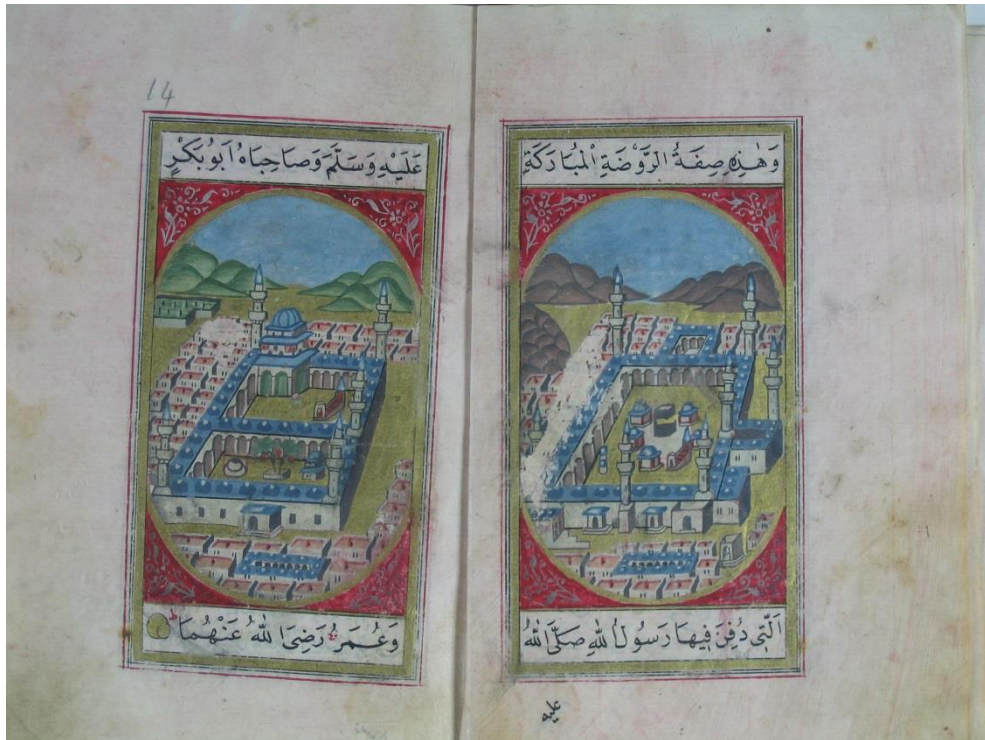 وَهٰذِهِ صِفَةُ الرَّوْضَةِ الْمُبَارَكَةِ
اَلَّتِي دُفِنَ فِيهَا رَسُولُ اللّٰهِ صَلَّى اللّٰهُ
عليه
14
عَلَيْهِ وَسَلَّمَ وَصَاحِبَاهُ اَبُو بَكْرٍ
وَعُمَرُ رَضِيَ اللّٰهُ عَنْهُمَا